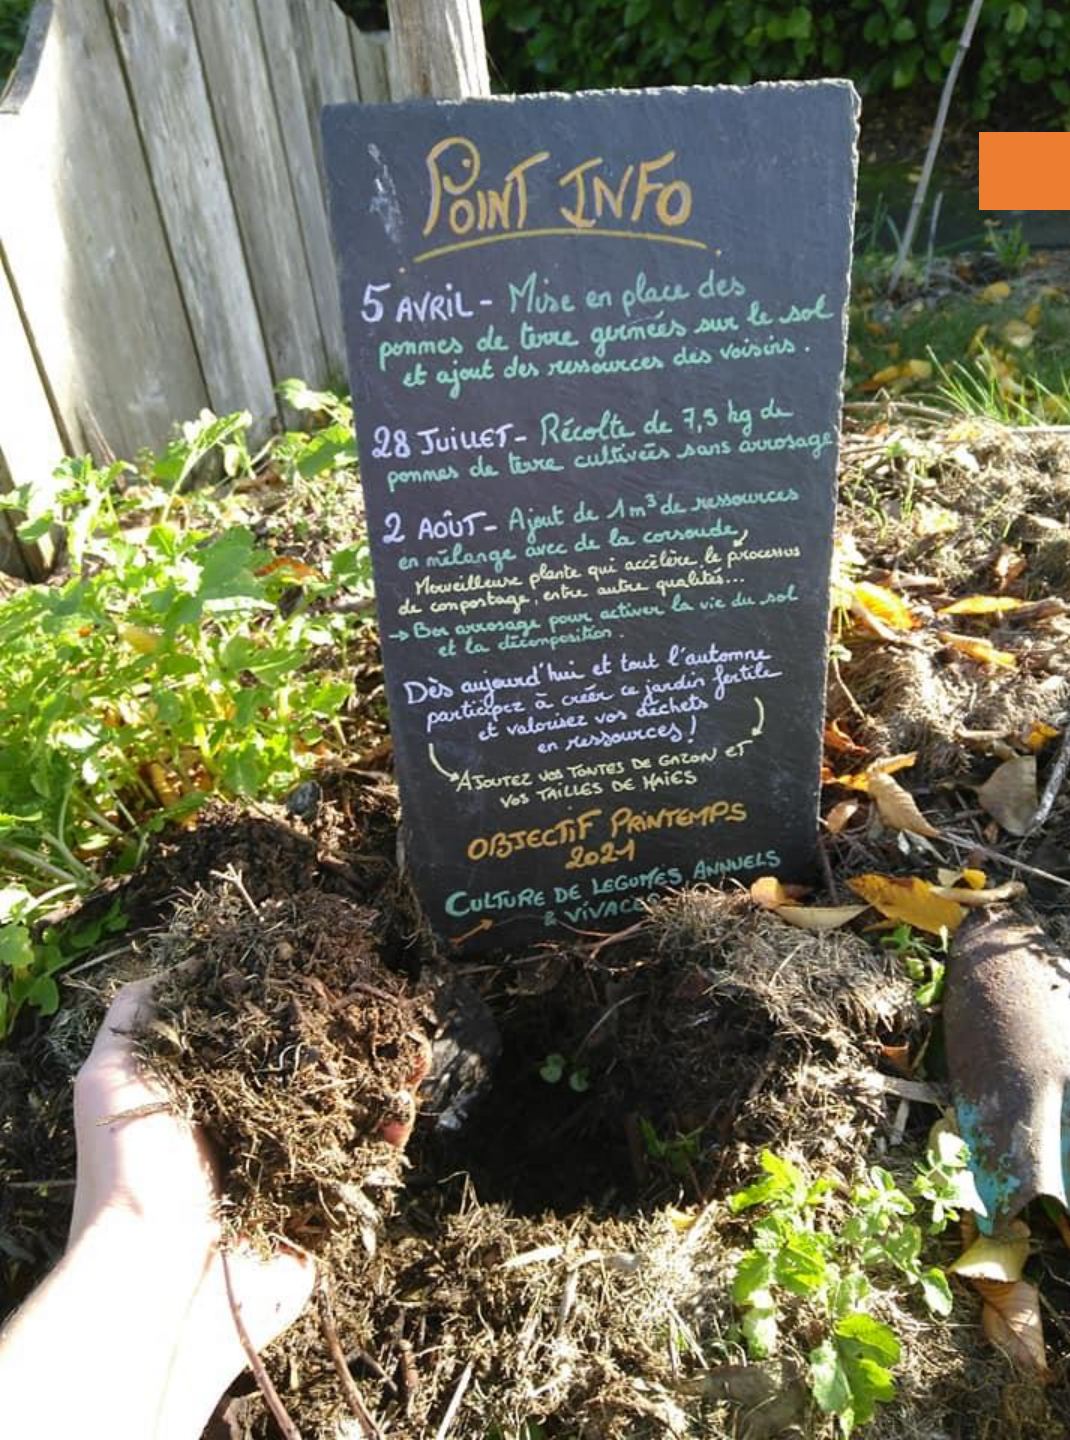 POINT INFO
5 AVRIL - Mise en place des
pommes de terre germées sur le sol
et ajout des ressources des voisins.
28 JUILLET - Récolte de 7,5 kg de
pommes de terre cultivées sans arrosage
2 AOÛT - Ajout de 1m³ de ressources
en mélange avec de la consoude,
Merveilleuse plante qui accélère le processus
de compostage, entre autre qualités...
→ Bon arrosage pour activer la vie du sol
et la décomposition.
Dès aujourd'hui et tout l'automne
participez à créer ce jardin fertile
et valorisez vos déchets
en ressources !
AJOUTEZ VOS TONTES DE GAZON ET
VOS TAILLES DE HAIES
OBJECTIF PRINTEMPS
2021
CULTURE DE LEGUMES ANNUELS
& VIVACES